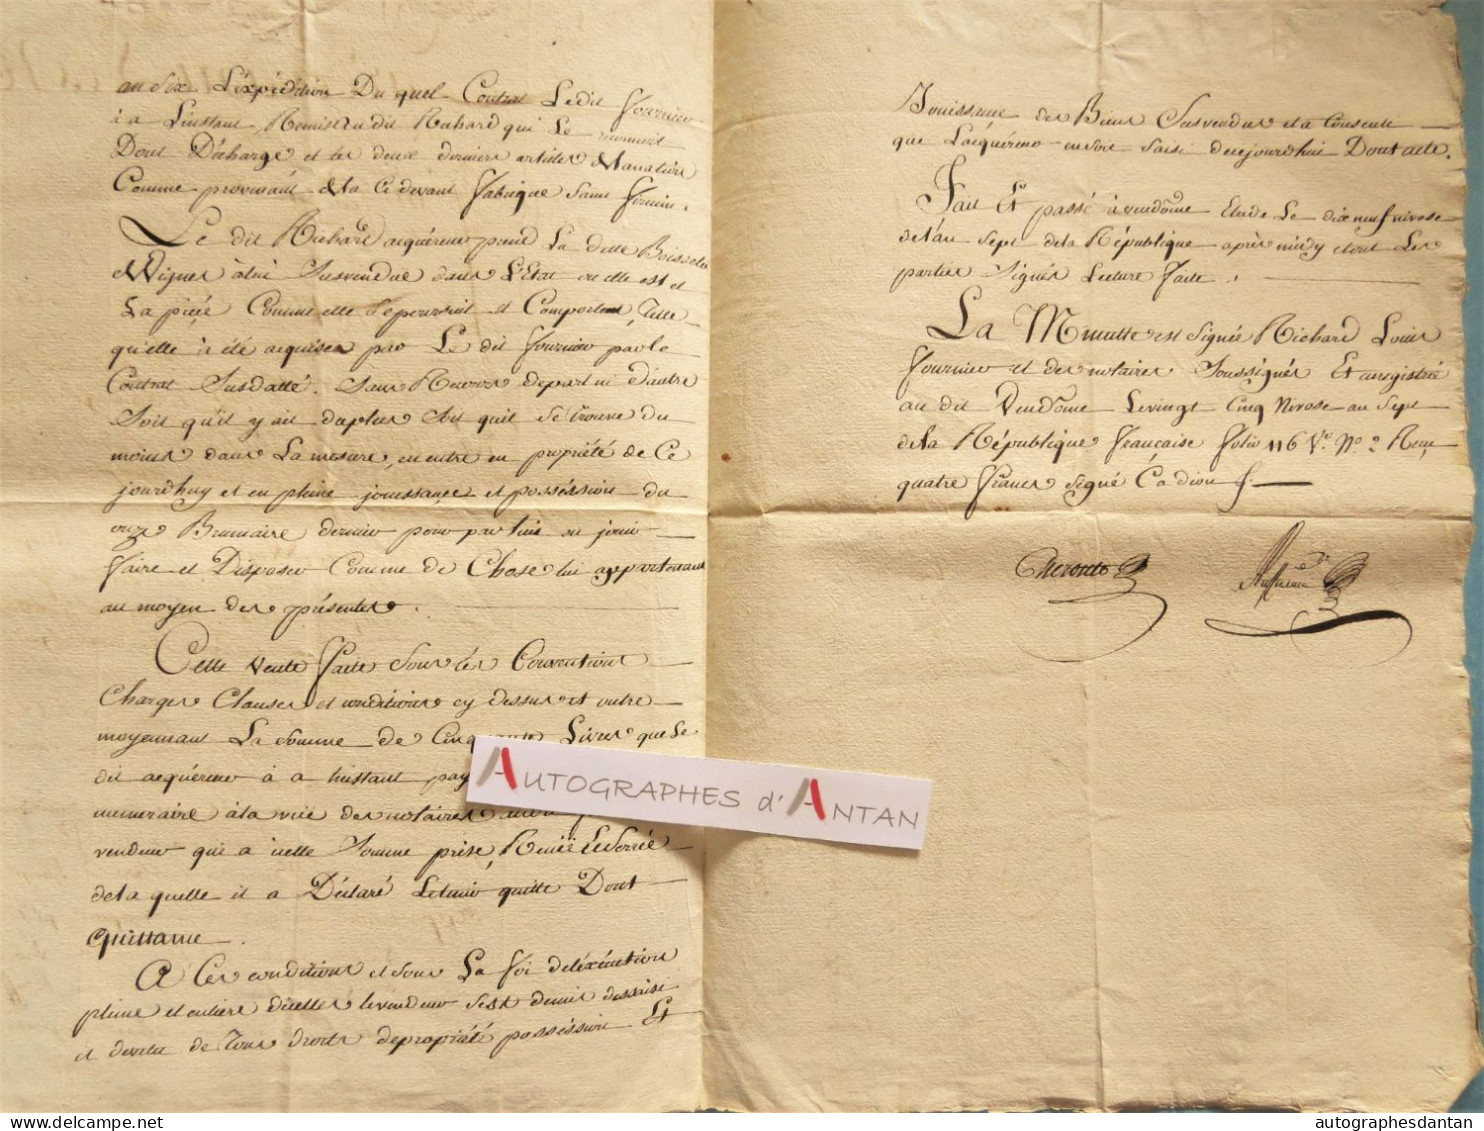 an Six L'expédition Du quel Contrat Ledit fournier
à a L'instant Remis au dit Richard qui Le
Dont Décharge et les deux derniers articles
Comme provenant de la Cidevant fabrique Saint firmin.
Le dit Richard acquéreur prend La dette Boisselée
Vignes à lui Susvendue dans L'Etat ou elle est et
La piéé Comme elle Sepoursuit et Comporte, Telle
qu'elle à été acquisee par Le dit fournier par le
Contrat Susdatté. Sans Recours depart ni d'autre
Soit qu'il y ait du plus Soit quil Se trouve du
moins dans La mesure, en entre en propriété de Ce
jourdhuy et en pleine jouissance et posséssion du
onze Brumaire dernier pour par lui en jouir
faire et Disposer Comme de Chose lui appartenant
au moyen des présentes.
Cette Vente faite Sous les Conventions
Charges Clauses et conditions cy dessus et outre
moyennant La Somme de Cinquante Livres que Le
dit acquéreur à a linstant pay
numeraire à la vüe des notaires
vendeur qui a icelle Somme prise, 
de la quelle il a Déclaré Le tenir quitte Dont
Quittance.
A Ces conditions et sous La foi deléxécution
pleine et entiere dicelles le vendeur Sest demis dessaisi
et devetu de Tous droits de propriété posséssion Et
Jouissance des Biens Susvendus et a Consenti
que Lacquéreur en soit Saisi decejourdhui Dont acte.
Fait Et passé à vendôme Etude Le dix neuf nivose
de l'an Sept de la République après midy et ont Les
parties Signés Lecture faite.
La Minutte est Signée Richard Louis
fournier et des notaires Soussignés Et enregistré
au dit Vendôme Le vingt Cinq Nivose an Sept
de la République française folio 116 Vº. Nº. 2 Reçu
quatre francs Signé Cadion f.
AUTOGRAPHES d'ANTAN
www.delcampe.net
autographesdantan